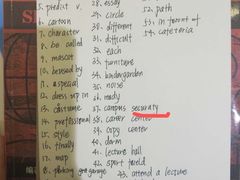 5. predict v.
6. cartoon
7. character
8. be called
9. mascot
11. a special
12. dress up in
13. costume
14. professional
15. style
16. finally
17. map
28. essay
29. circle
30. different
31. difficult
32. each
33. furniture
34. kindergarden
35. noise
36. ready
37. campus security
38. career center
39. copy center
40. dorm
41. lecture hall
42. sport field
43. attend a lecture
52. path
53. in front of
54. cafeteria